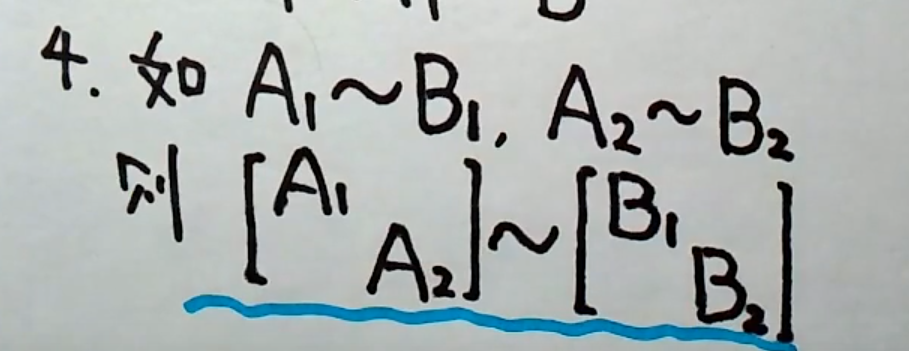 4. 如 A₁~B₁, A₂~B₂
则 [A₁
A₂] ~ [B₁
B₂]